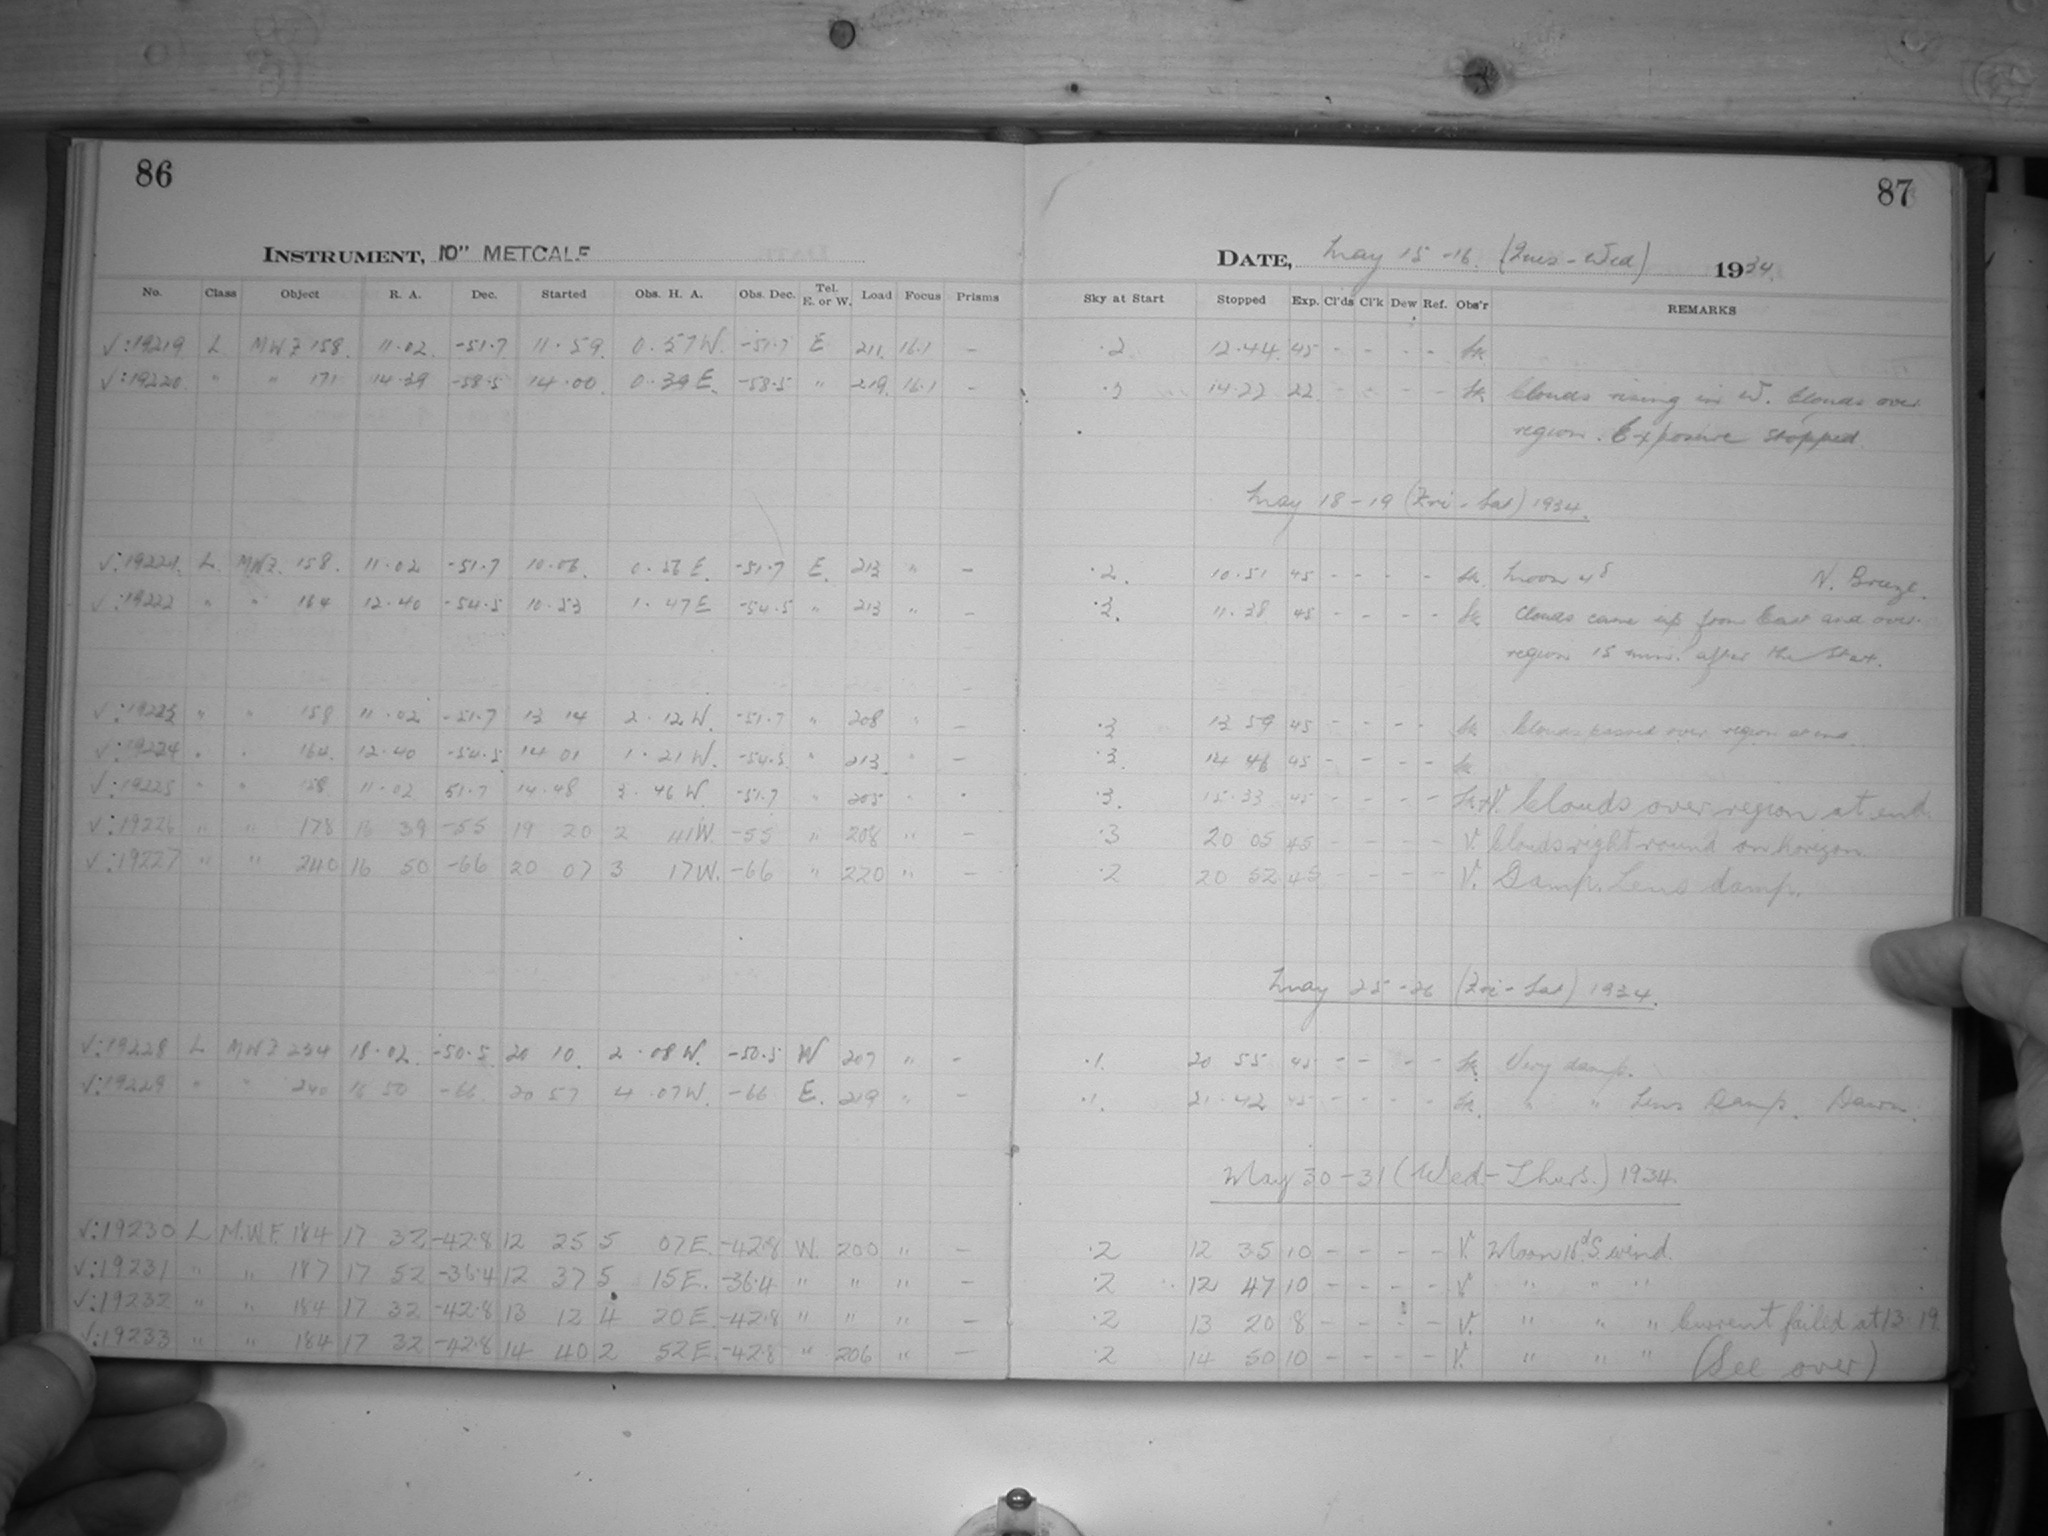 86
87
INSTRUMENT, 10" METCALF
DATE, May 15-16 (Tues-Wed) 1934.
No. Class Object R. A. Dec. Started Obs. H. A. Obs. Dec. Tel. E. or W. Load Focus Prisms Sky at Start Stopped Exp. Cl'ds Cl'k Dew Ref. Obs'r REMARKS
√:19219 L MWF 158. 11.02. -51.7 11.59. 0.57W. -51.7 E 211 16.1 - .2 12.44. 45 - - - -
√:19220 " " 171 14.39 -58.5 14.00. 0.39E. -58.5 " 219. 16.1 - 14.22 22 - - - - Clouds rising in W. Clouds over
region. Exposure stopped.
May 18-19 (Fri-Sat) 1934.
√:19221. L. MWF. 158. 11.02 -51.7 10.06. 0.56E. -51.7 E. 213 " - .2. 10.51 45 - - - - Moon 4d N. Breeze.
√:19222 " " 164 12.40 -54.5 10.53 1.47E -54.5 " 213 " - 11.38 45 - - - - Clouds came up from East and over
region 15 min. after the start.
√:19223 " " 158 11.02 -51.7 13 14 2.12W. -51.7 " 208 " - .3 13 59 45 - - - - Clouds passed over region at end.
√:19224 " " 164. 12.40 -54.5 14 01 1.21W. -54.5 " 213 " - .3. 14 46 45 - - - -
√:19225 " " 158 11.02 51.7 14.48 3.46W. -51.7 " 205 " - .3. 15.33 45 - - - - Clouds over region at end.
√:19226 " " 178 39 -55 19 20 2 41W -55 " 208 " - .3 20 05 45 - - - - V. Clouds right round on horizon
√:19227 " " 240 16 50 -66 20 07 3 17W. -66 " 220 " - .2 20 52 45 - - - - V. Damp. Lens damp.
May 25-26 (Fri-Sat) 1934.
√:19228 L MWF 234 18.02. -50.5 20 10. 2.08W. -50.5 W 207 " - .1. 20 55 45 - - - - Very damp.
√:19229 " " 240 16 50 -66 20 57 4.07W. -66 E. 219 " - .1. 21.42 45 - - - - " " Lens Damp. Dawn.
May 30-31 (Wed-Thurs.) 1934.
√:19230 L M.W.F. 184 17 32 -42.8 12 25 5 07E. -42.8 W. 200 " - .2 12 35 10 - - - - V. Moon 16d S. wind.
√:19231 " " 187 17 52 -36.4 12 37 5 15E. -36.4 " " " - .2 12 47 10 - - - - V " " "
√:19232 " " 184 17 32 -42.8 13 12 4 20E. -42.8 " " " - .2 13 20 8 - - - - V. " " " Current failed at 13 19.
√:19233 " " 184 17 32 -42.8 14 40 2 52E. -42.8 " 206 " - .2 14 50 10 - - - - V. " " " (See over)